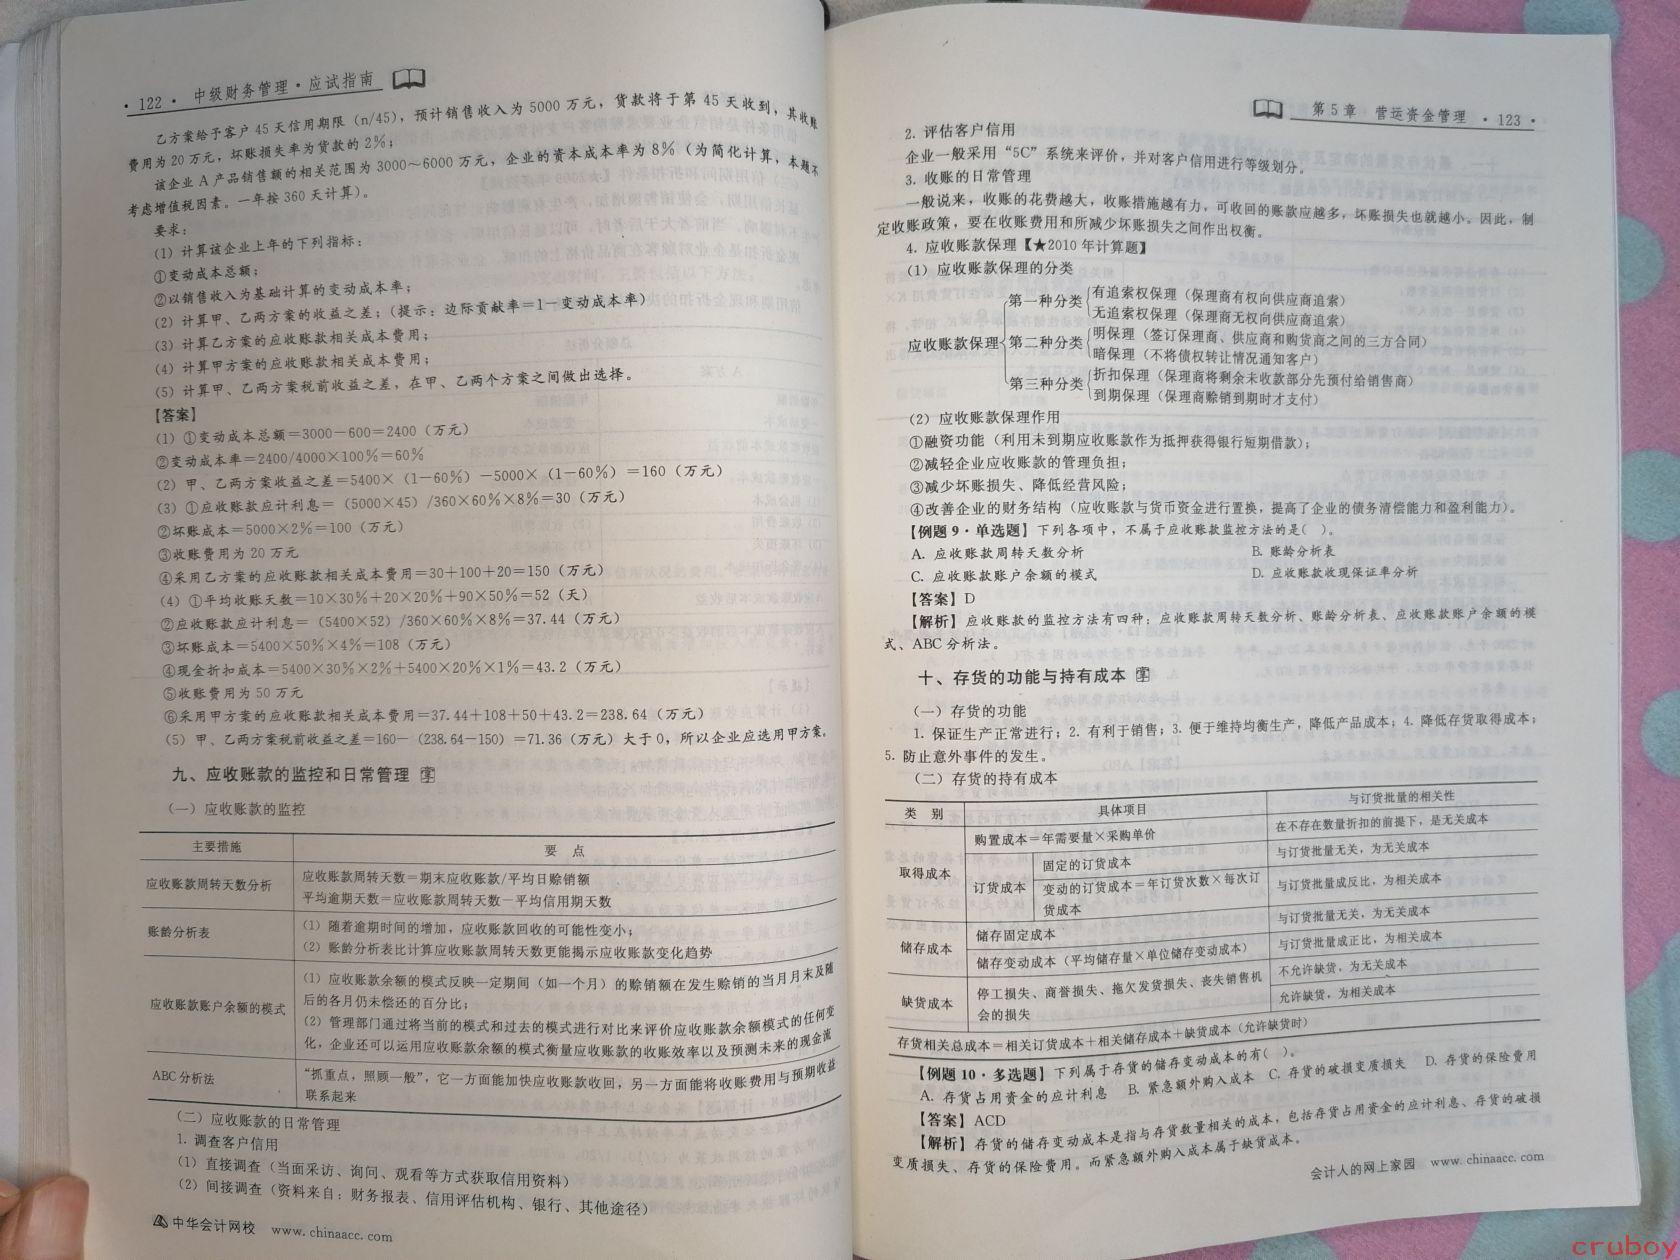 · 122 · 中级财务管理·应试指南
乙方案给予客户 45 天信用期限（n/45），预计销售收入为 5000 万元，货款将于第 45 天收到，其收账
费用为 20 万元，坏账损失率为货款的 2%；
该企业 A 产品销售额的相关范围为 3000～6000 万元，企业的资本成本率为 8%（为简化计算，本题不
考虑增值税因素。一年按 360 天计算）。
要求：
（1）计算该企业上年的下列指标：
①变动成本总额；
②以销售收入为基础计算的变动成本率；
（2）计算甲、乙两方案的收益之差；（提示：边际贡献率＝1－变动成本率）
（3）计算乙方案的应收账款相关成本费用；
（4）计算甲方案的应收账款相关成本费用；
（5）计算甲、乙两方案税前收益之差，在甲、乙两个方案之间做出选择。
【答案】
（1）①变动成本总额＝3000－600＝2400（万元）
②变动成本率＝2400/4000×100%＝60%
（2）甲、乙两方案收益之差＝5400×（1－60%）－5000×（1－60%）＝160（万元）
（3）①应收账款应计利息＝（5000×45）/360×60%×8%＝30（万元）
②坏账成本＝5000×2%＝100（万元）
③收账费用为 20 万元
④采用乙方案的应收账款相关成本费用＝30＋100＋20＝150（万元）
（4）①平均收账天数＝10×30%＋20×20%＋90×50%＝52（天）
②应收账款应计利息＝（5400×52）/360×60%×8%＝37.44（万元）
③坏账成本＝5400×50%×4%＝108（万元）
④现金折扣成本＝5400×30%×2%＋5400×20%×1%＝43.2（万元）
⑤收账费用为 50 万元
⑥采用甲方案的应收账款相关成本费用＝37.44＋108＋50＋43.2＝238.64（万元）
（5）甲、乙两方案税前收益之差＝160－（238.64－150）＝71.36（万元）大于 0，所以企业应选用甲方案。
九、应收账款的监控和日常管理
（一）应收账款的监控
主要措施 要 点
应收账款周转天数分析 应收账款周转天数＝期末应收账款/平均日赊销额
平均逾期天数＝应收账款周转天数－平均信用期天数
账龄分析表 （1）随着逾期时间的增加，应收账款回收的可能性变小；
（2）账龄分析表比计算应收账款周转天数更能揭示应收账款变化趋势
应收账款账户余额的模式 （1）应收账款余额的模式反映一定期间（如一个月）的赊销额在发生赊销的当月月末及随
后的各月仍未偿还的百分比；
（2）管理部门通过将当前的模式和过去的模式进行对比来评价应收账款余额模式的任何变
化，企业还可以运用应收账款余额的模式衡量应收账款的收账效率以及预测未来的现金流
ABC 分析法 “抓重点，照顾一般”，它一方面能加快应收账款收回，另一方面能将收账费用与预期收益
联系起来
（二）应收账款的日常管理
1. 调查客户信用
（1）直接调查（当面采访、询问、观看等方式获取信用资料）
（2）间接调查（资料来自：财务报表、信用评估机构、银行、其他途径）
中华会计网校 www.chinaacc.com
第 5 章 营运资金管理 · 123 ·
2. 评估客户信用
企业一般采用“5C”系统来评价，并对客户信用进行等级划分。
3. 收账的日常管理
一般说来，收账的花费越大，收账措施越有力，可收回的账款应越多，坏账损失也就越小。因此，制
定收账政策，要在收账费用和所减少坏账损失之间作出权衡。
4. 应收账款保理【★2010 年计算题】
（1）应收账款保理的分类
第一种分类 有追索权保理（保理商有权向供应商追索）
无追索权保理（保理商无权向供应商追索）
应收账款保理 第二种分类 明保理（签订保理商、供应商和购货商之间的三方合同）
暗保理（不将债权转让情况通知客户）
第三种分类 折扣保理（保理商将剩余未收款部分先预付给销售商）
到期保理（保理商赊销到期时才支付）
（2）应收账款保理作用
①融资功能（利用未到期应收账款作为抵押获得银行短期借款）；
②减轻企业应收账款的管理负担；
③减少坏账损失、降低经营风险；
④改善企业的财务结构（应收账款与货币资金进行置换，提高了企业的债务清偿能力和盈利能力）。
【例题 9·单选题】下列各项中，不属于应收账款监控方法的是（ ）。
A. 应收账款周转天数分析 B. 账龄分析表
C. 应收账款账户余额的模式 D. 应收账款收现保证率分析
【答案】D
【解析】应收账款的监控方法有四种：应收账款周转天数分析、账龄分析表、应收账款账户余额的模
式、ABC 分析法。
十、存货的功能与持有成本
（一）存货的功能
1. 保证生产正常进行；2. 有利于销售；3. 便于维持均衡生产，降低产品成本；4. 降低存货取得成本；
5. 防止意外事件的发生。
（二）存货的持有成本
类 别 具体项目 与订货批量的相关性
取得成本 购置成本＝年需要量×采购单价 在不存在数量折扣的前提下，是无关成本
订货成本 固定的订货成本 与订货批量无关，为无关成本
变动的订货成本＝年订货次数×每次订
货成本 与订货批量成反比，为相关成本
储存成本 储存固定成本 与订货批量无关，为无关成本
储存变动成本（平均储存量×单位储存变动成本） 与订货批量成正比，为相关成本
缺货成本 停工损失、商誉损失、拖欠发货损失、丧失销售机
会的损失 不允许缺货，为无关成本
允许缺货，为相关成本
存货相关总成本＝相关订货成本＋相关储存成本＋缺货成本（允许缺货时）
【例题 10·多选题】下列属于存货的储存变动成本的有（ ）。
A. 存货占用资金的应计利息 B. 紧急额外购入成本 C. 存货的破损变质损失 D. 存货的保险费用
【答案】ACD
【解析】存货的储存变动成本是指与存货数量相关的成本，包括存货占用资金的应计利息、存货的破损
变质损失、存货的保险费用。而紧急额外购入成本属于缺货成本。
会计人的网上家园 www.chinaacc.com
cruboy